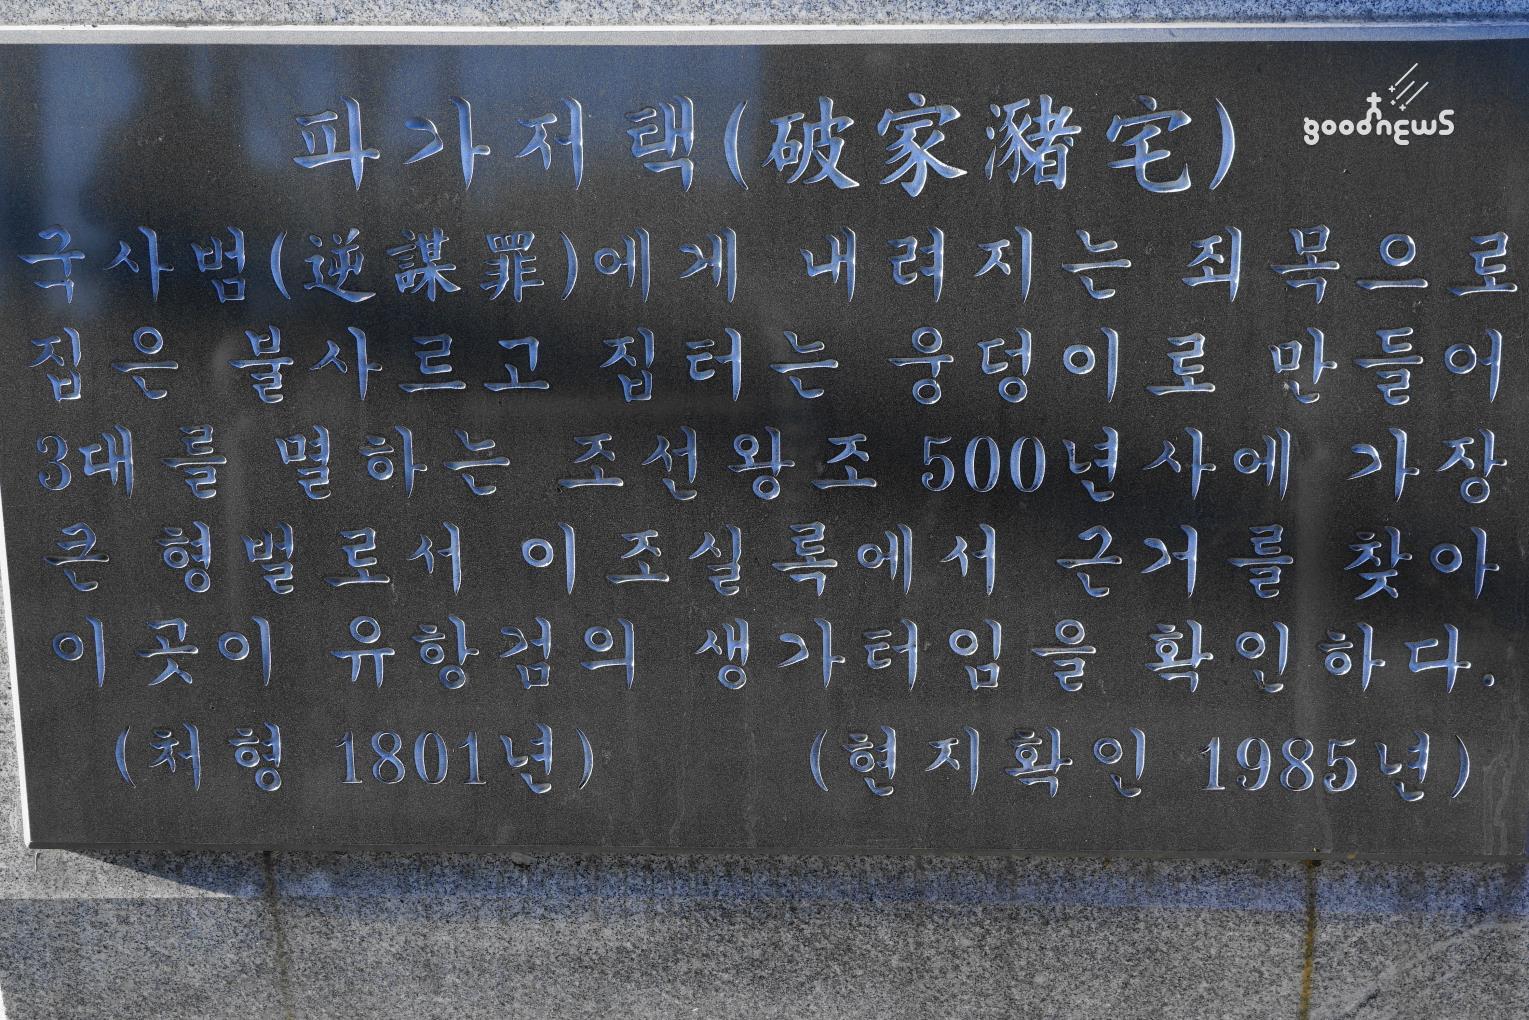 파가저택(破家瀦宅)
goodnews
국사범(逆謀罪)에게 내려지는 죄목으로
집은 불사르고 집터는 웅덩이로 만들어
3대를 멸하는 조선왕조 500년사에 가장
큰 형벌로서 이조실록에서 근거를 찾아
이곳이 유항검의 생가터임을 확인하다.
(처형 1801년) (현지확인 1985년)